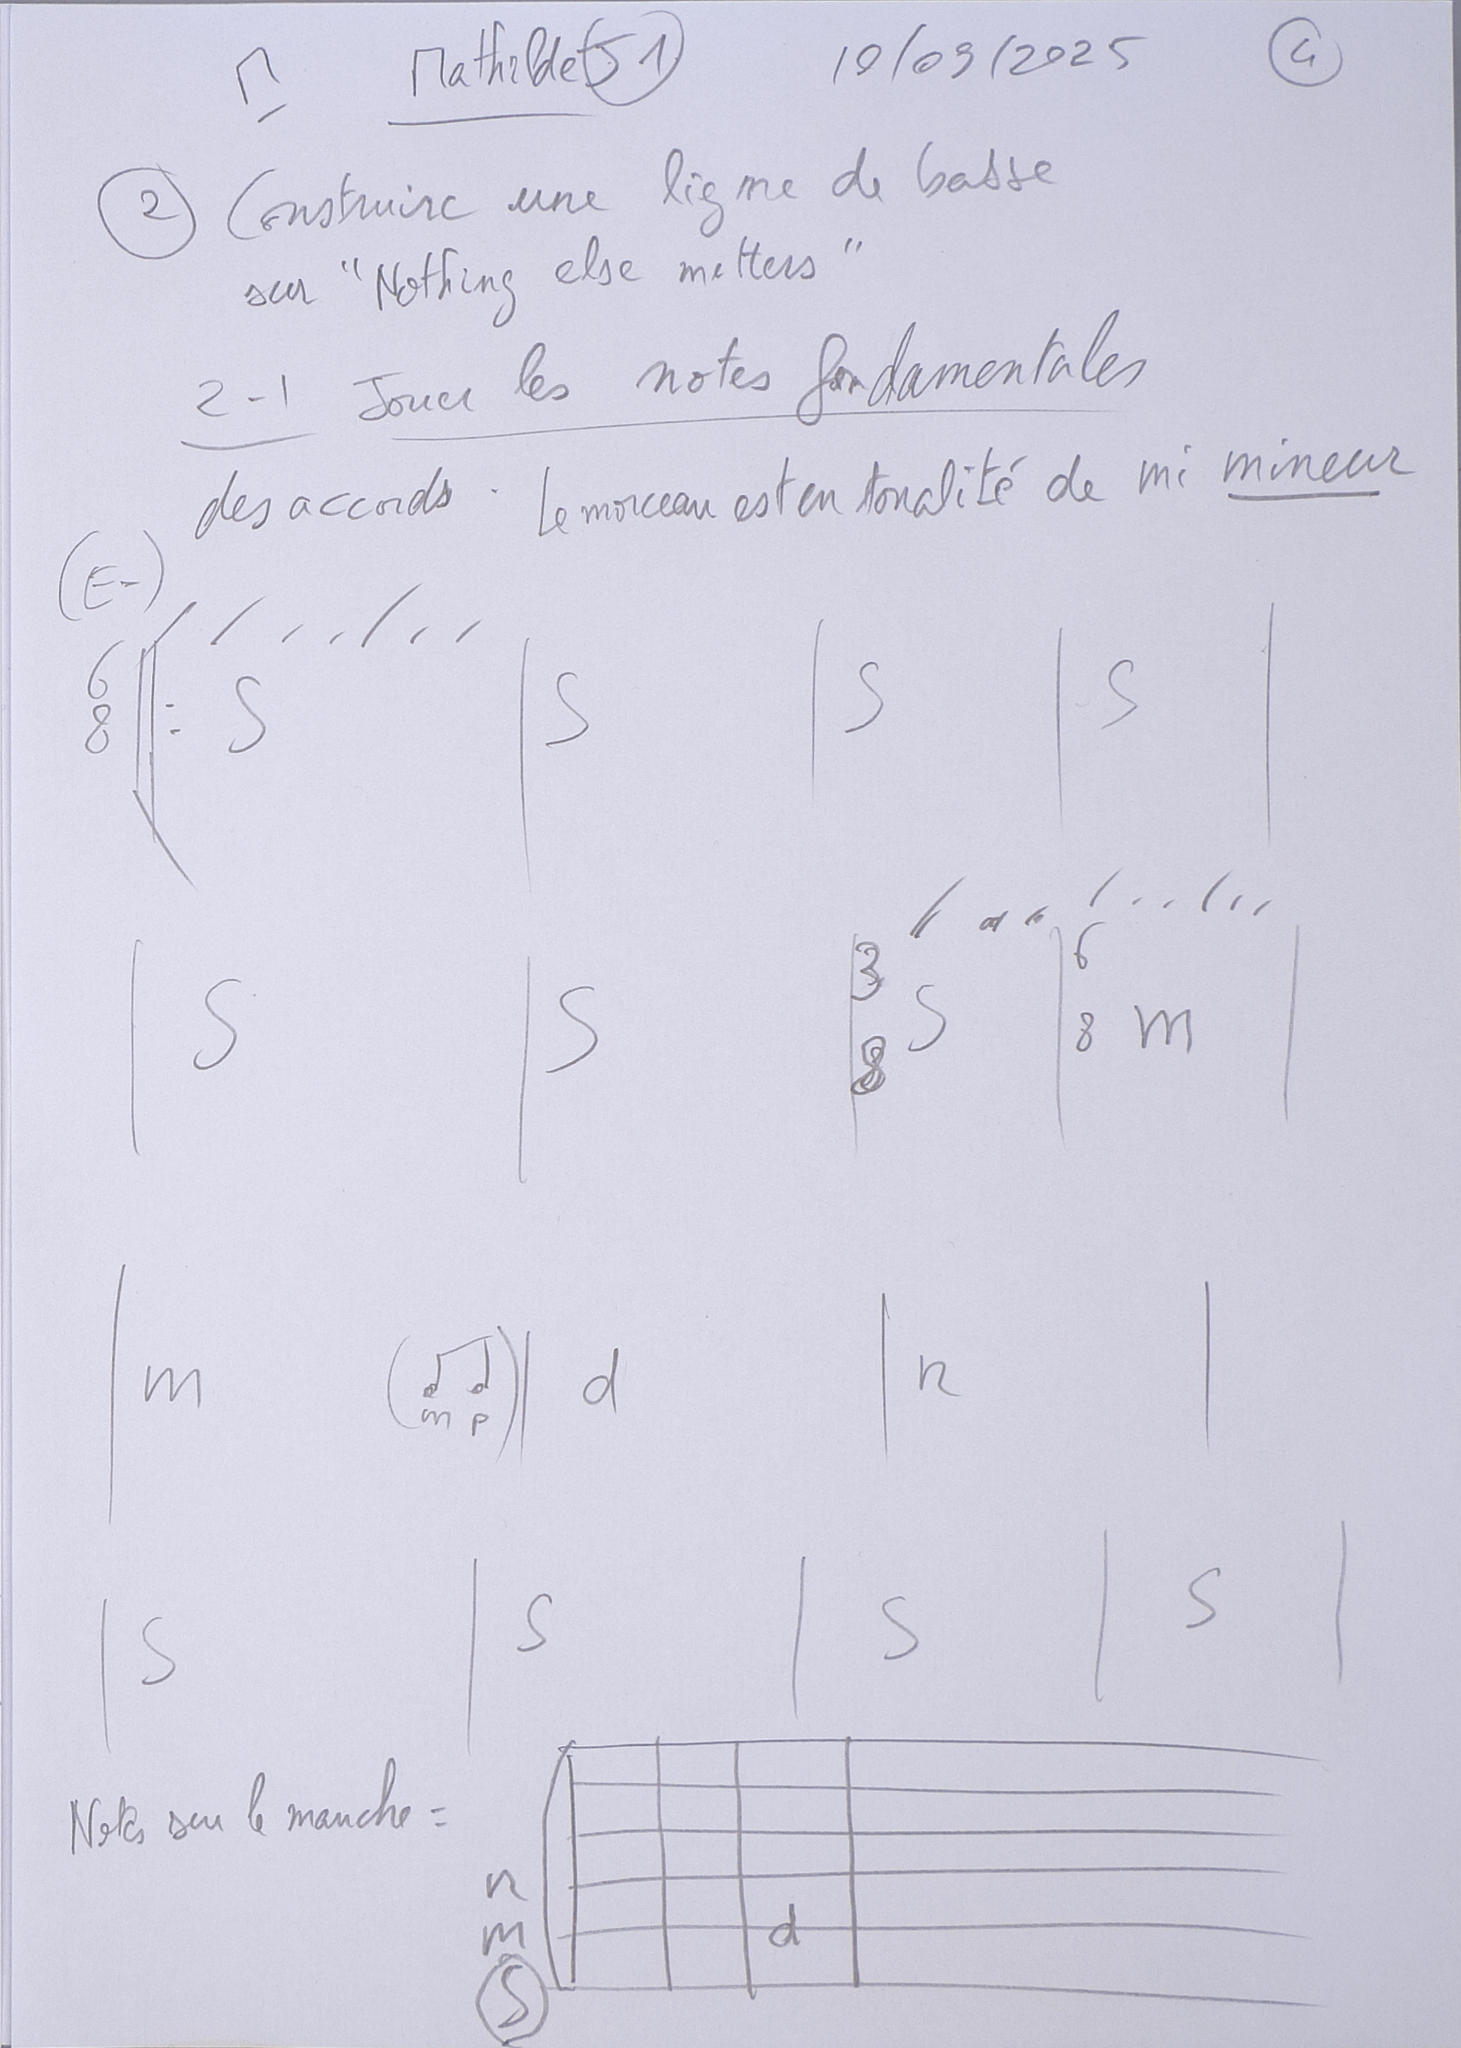 Mathilde S1 10/09/2025 4
2 Construire une ligne de basse
sur "Nothing else metters"
2-1 Jouer les notes fondamentales
des accords. Le morceau est en tonalité de mi mineur
(E-)
6 8 S S S S
S S 3 8 S 6 8 m
m (m p) d r
S S S S
Notes sur le manche =
r
m d
S